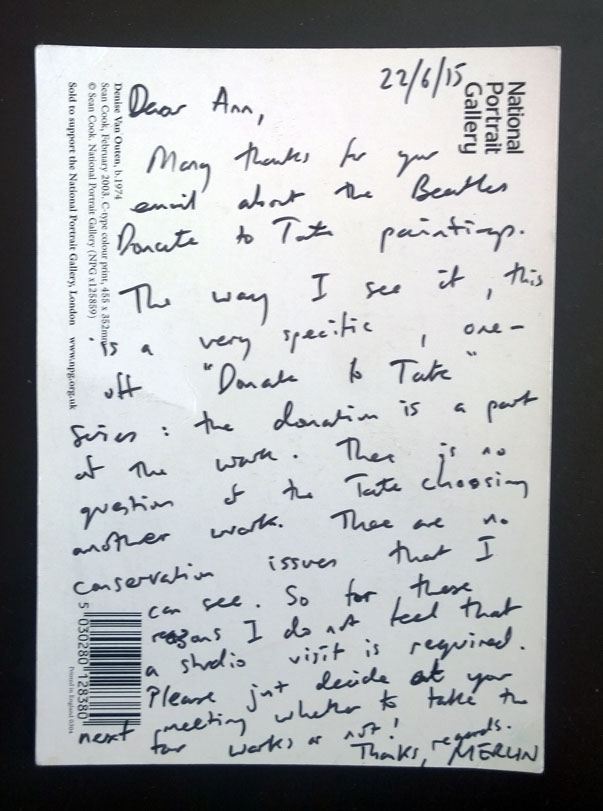 22/6/15
National
Portrait
Gallery
Dear Ann,
Many thanks for your
email about the Beatles
Donate to Tate paintings.
The way I see it, this
is a very specific, one-
off "Donate to Tate"
series: the donation is a part
of the work. There is no
question of the Tate choosing
another work. There are no
conservation issues that I
can see. So for these
reasons I do not feel that
a studio visit is required.
Please just decide at your
next meeting whether to take the
four works or not!
Thanks, regards.
MERLIN
Denise Van Outen, b.1974
Sean Cook, February 2003. C-type colour print, 455 x 352mm
© Sean Cook. National Portrait Gallery (NPG x125859)
Sold to support the National Portrait Gallery, London www.npg.org.uk
5 030280 128380